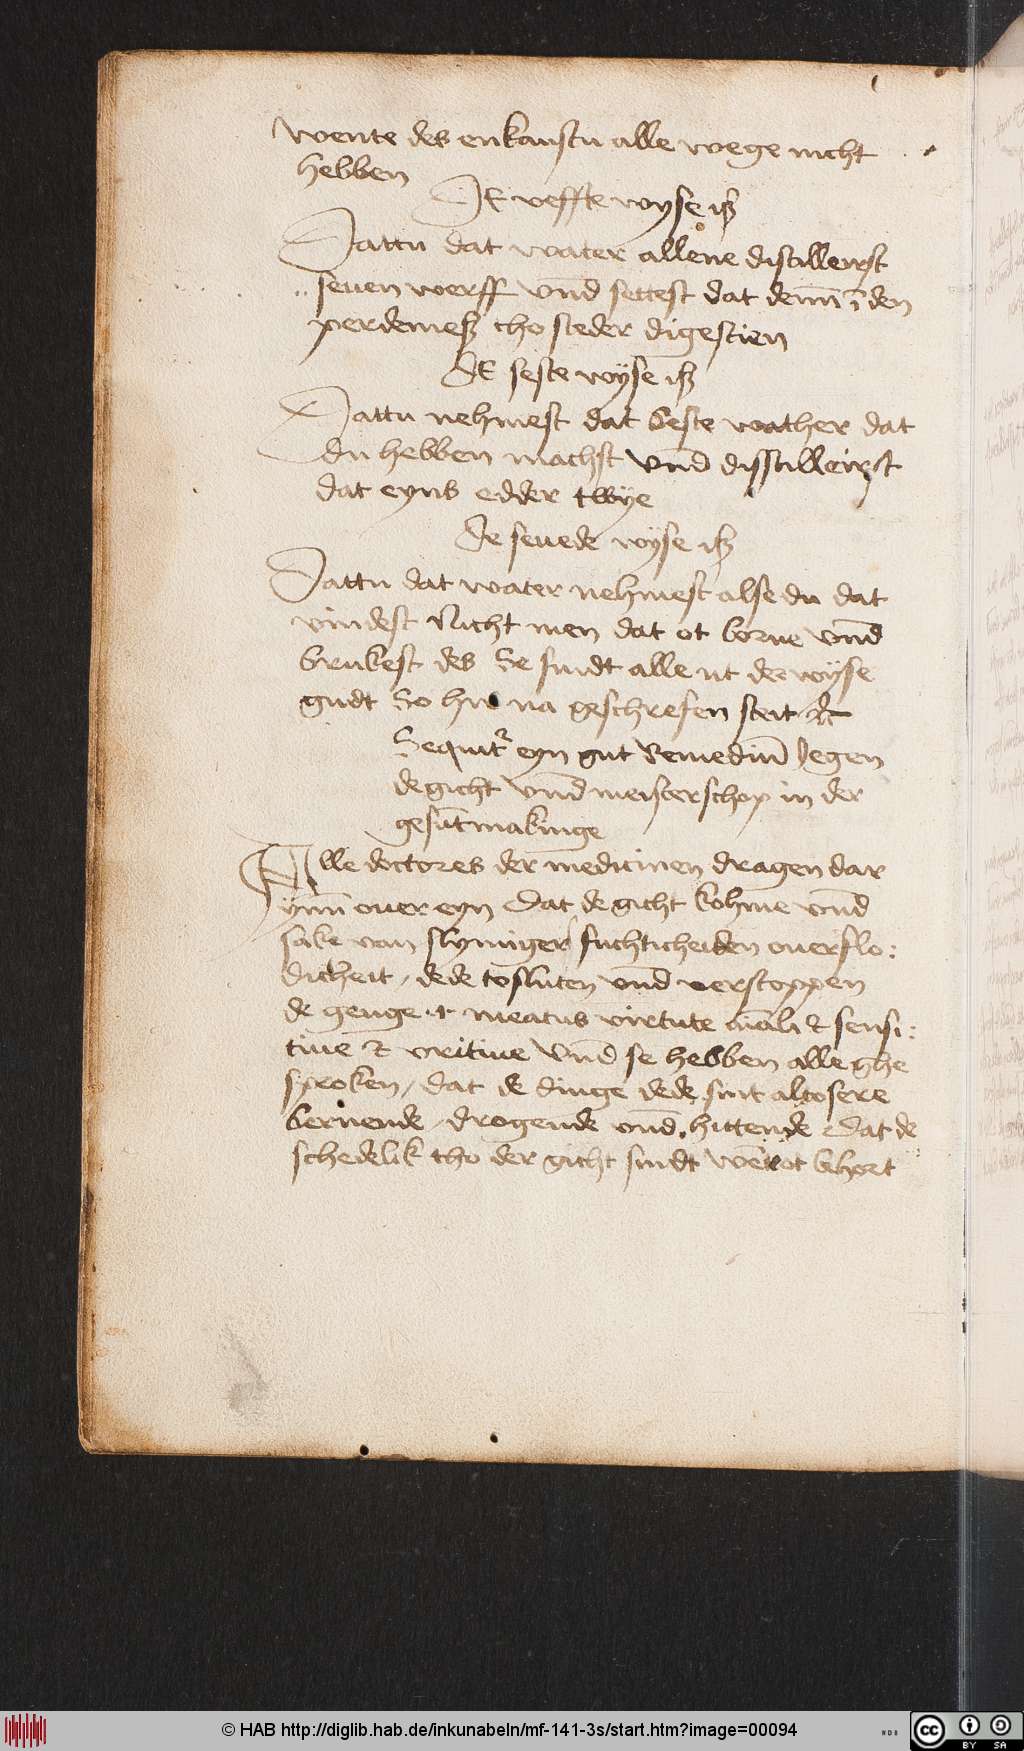 wente des enkanstu alle wege nicht
hebben
DE veffte wyse iß
Dattu dat water allene distillerst
seuen werff vnd settest dat denn̄ ī den
perdemeß tho steder digestien
DE seste wyse iß
Dattu nehmest dat beste wather dat
du hebben machst vnd disstillerest
dat eyns edder twye
De seuede wyse iß
Dattu dat water nehmest alse du dat
vindest Nicht men dat ot borne vnd
brukest des Se sindt alle ut der wyse
gudt So hir na geschrefen steit ꝛc
Sequit᷑ eyn gut Remediū Jegen
de gicht vnd meisterschop in der
gesūtmakinge
Alle doctores der medicinen dragen dar
ynn̄ ouer eyn Dat de gicht kohme vnd
sake van slymiger fuchticheiden ouerflo:
dicheit, dede tosluten vnd verstoppen
de genge .i. meatus virtute aīali ⁊ sensi:
tiue ⁊ vritiue Vnd se hebben alle ghe
sproken, dat de dinge dede sint altosere
bernende, drogende vnd hittende Dat de
schedelik tho der gicht sindt wēte ot behort
© HAB http://diglib.hab.de/inkunabeln/mf-141-3s/start.htm?image=00094
WDB
cc BY SA